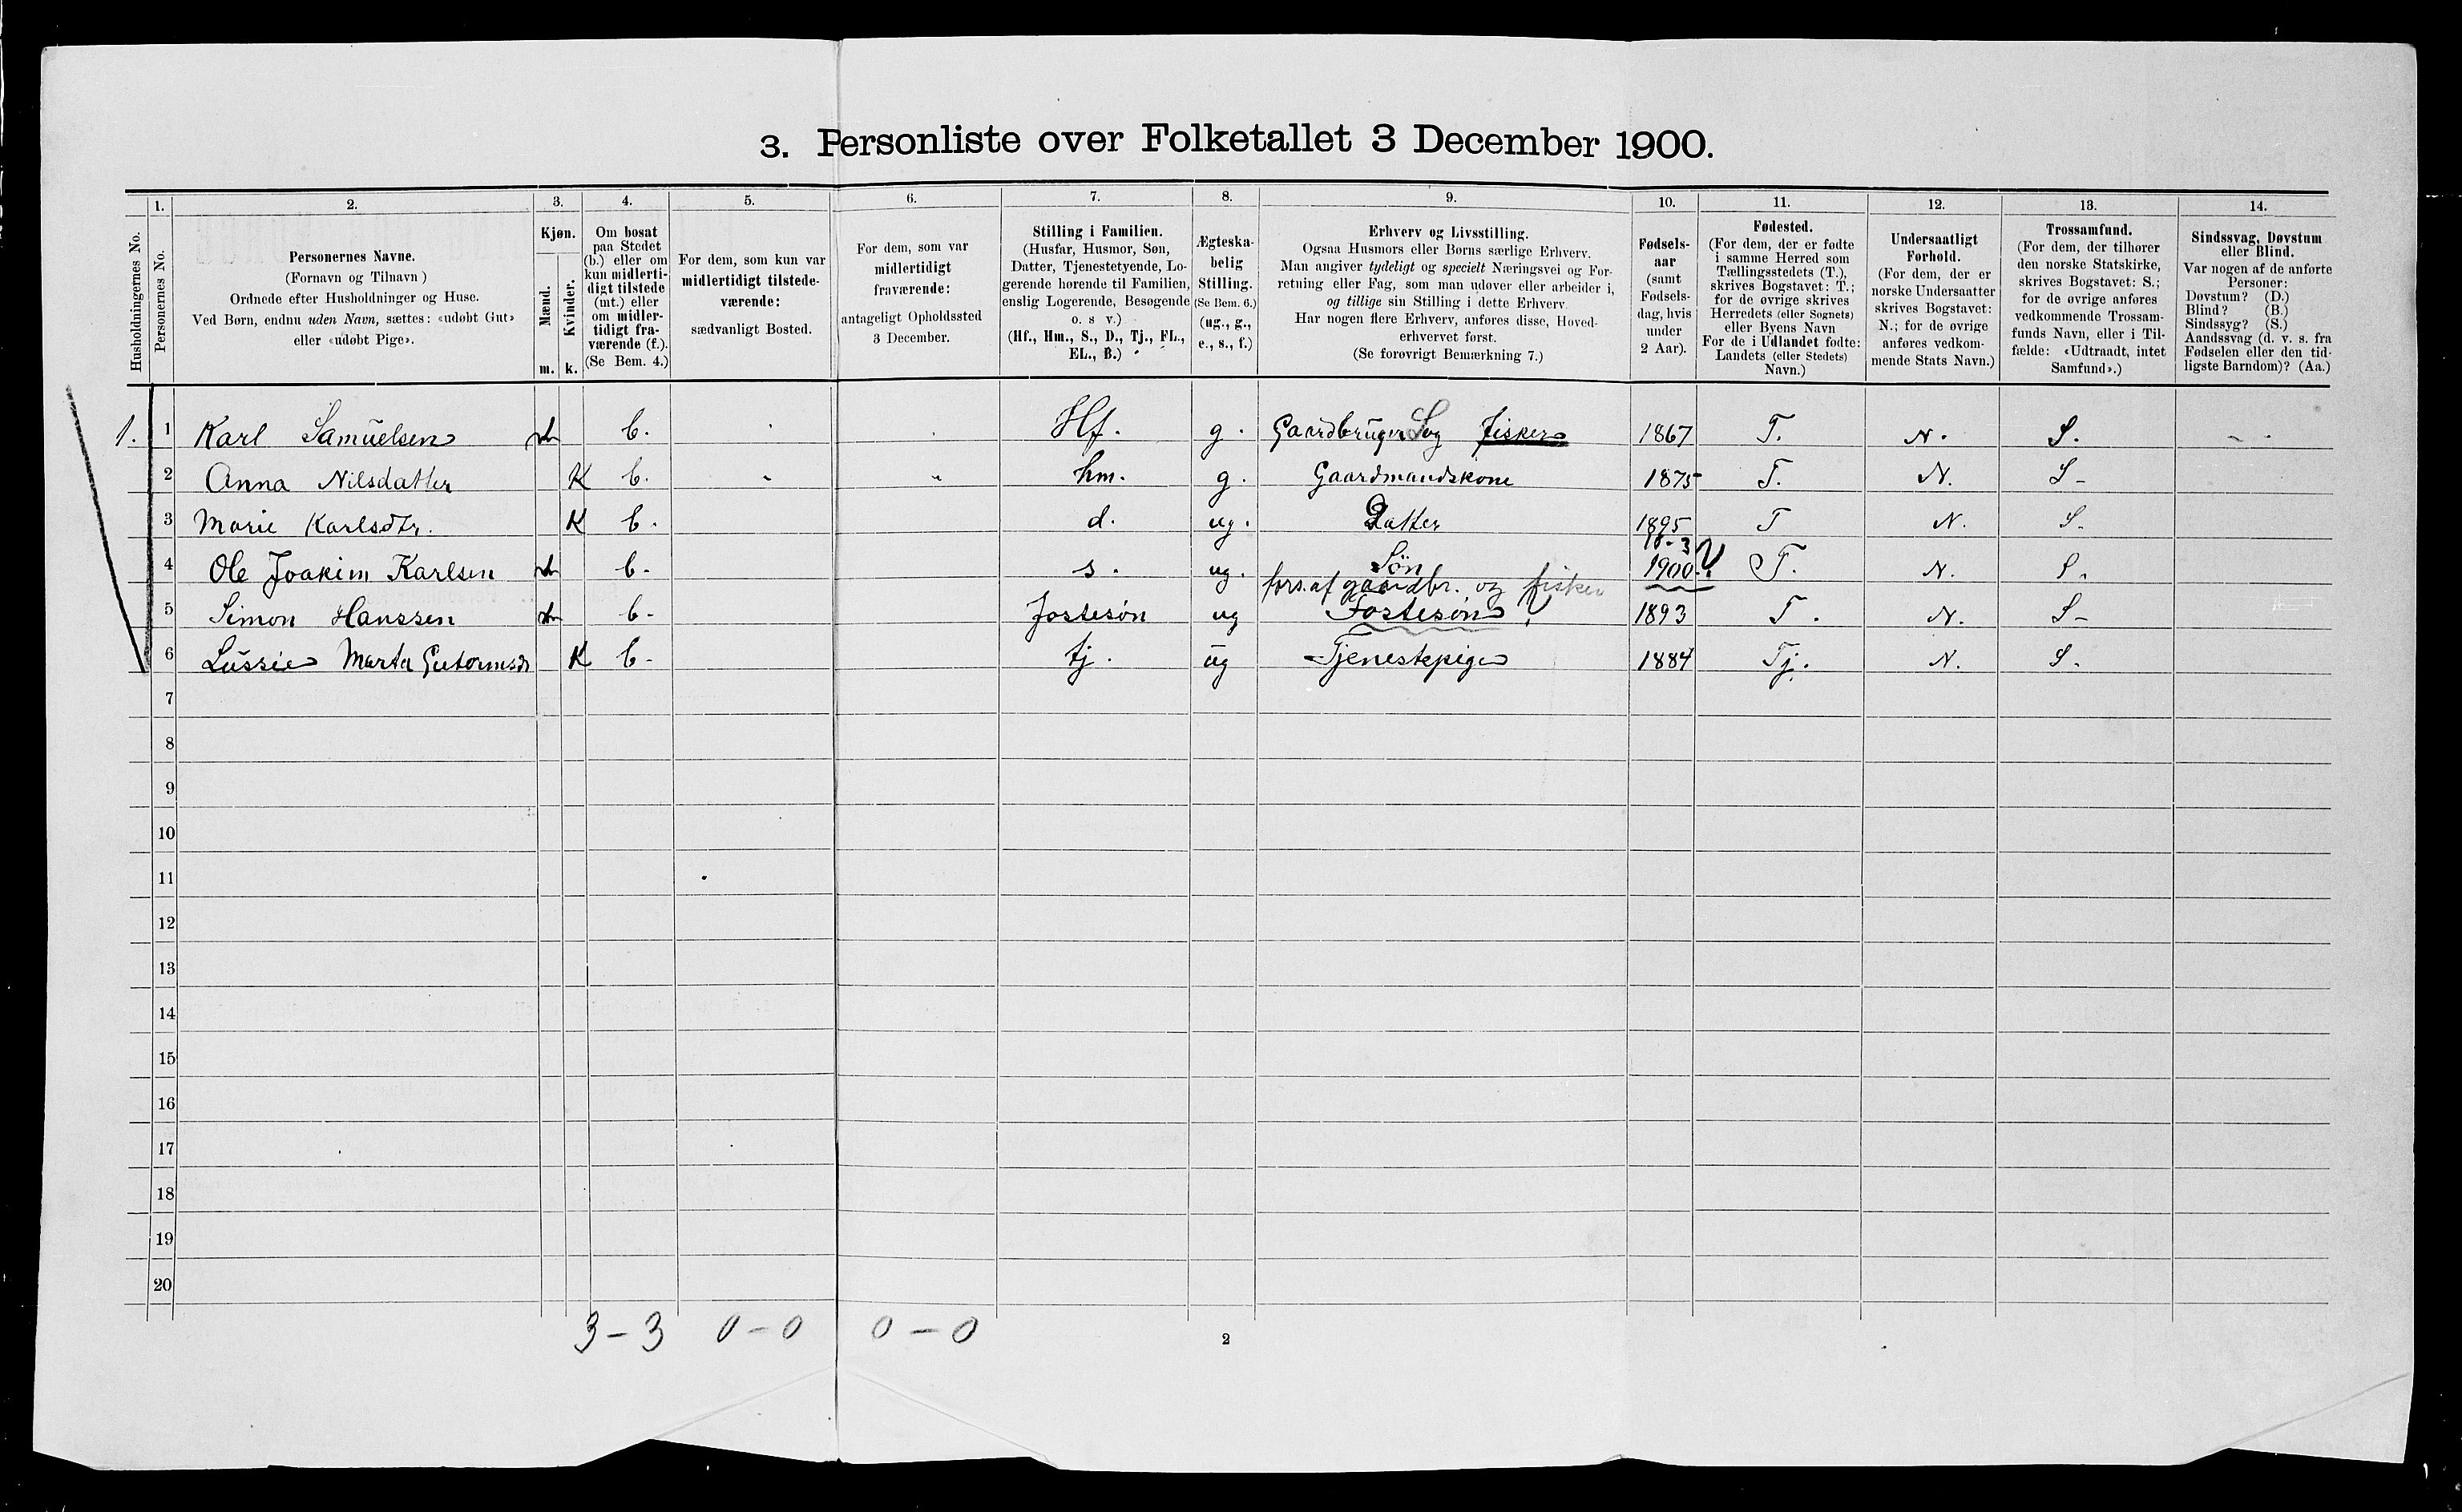 3. Personliste over Folketallet 3 December 1900.
1. 2. 3. 4. 5. 6. 7. 8. 9. 10. 11. 12. 13. 14.
Husholdningernes No.
Personernes No.
Personernes Navne.
(Fornavn og Tilnavn)
Ordnede efter Husholdninger og Huse.
Ved Børn, endnu uden Navn, sættes: «udøbt Gut»
eller «udøbt Pige».
Kjøn.
Mænd.
Kvinder.
m. k.
Om bosat
paa Stedet
(b.) eller om
kun midlerti-
digt tilstede
(mt.) eller
om midler-
tidigt fra-
værende (f.).
(Se Bem. 4.)
For dem, som kun var
midlertidigt tilstede-
værende:
sædvanligt Bosted.
For dem, som var
midlertidigt
fraværende:
antageligt Opholdssted
3 December.
Stilling i Familien.
(Husfar, Husmor, Søn,
Datter, Tjenestetyende, Lo-
gerende hørende til Familien,
enslig Logerende, Besøgende
o. s v.)
(Hf., Hm., S., D., Tj., FL.,
EL., B.)
Ægteska-
belig
Stilling.
(Se Bem. 6.)
(ug., g.,
e., s., f.)
Erhverv og Livsstilling.
Ogsaa Husmors eller Børns særlige Erhverv.
Man angiver tydeligt og specielt Næringsvei og For-
retning eller Fag, som man udøver eller arbeider i,
og tillige sin Stilling i dette Erhverv.
Har nogen flere Erhverv, anføres disse, Hoved-
erhvervet først.
(Se forøvrigt Bemærkning 7.)
Fødsels-
aar
(samt
Fødsels-
dag, hvis
under
2 Aar).
Fødested.
(For dem, der er fødte
i samme Herred som
Tællingsstedets (T.),
skrives Bogstavet: T.;
for de øvrige skrives
Herredets (eller Sognets)
eller Byens Navn
For de i Udlandet fødte:
Landets (eller Stedets)
Navn.)
Undersaatligt
Forhold.
(For dem, der er
norske Undersaatter
skrives Bogstavet:
N.; for de øvrige
anføres vedkom-
mende Stats Navn.)
Trossamfund.
(For dem, der tilhører
den norske Statskirke,
skrives Bogstavet: S.;
for de øvrige anføres
vedkommende Trossam-
funds Navn, eller i Til-
fælde: «Udtraadt, intet
Samfund».)
Sindssvag, Døvstum
eller Blind.
Var nogen af de anførte
Personer:
Døvstum? (D.)
Blind? (B.)
Sindssyg? (S.)
Aandssvag (d. v. s. fra
Fødselen eller den tid-
ligste Barndom)? (Aa.)
1. 1 Karl Samuelsen m b. Hf. g. Gaardbruger S og fisker 1867 T. N. S.
2 Anna Nilsdatter K b. hm. g. Gaardmandskone 1875 T. N. S-
3 Marie Karlsdtr. K b. d. ug. Datter 1895 T N. S.
18-3
4 Ole Joakim Karlsen m b. s. ug. Søn 1900 T. N. S.
fors. af gaardbr. og fisker
5 Simon Hanssen m b- Fostesön ug Fostesön 1893 T. N. S-
6 Lussie Marta Gutormsdr K b- tj. ug Tjenestepige 1884 Tj. N. S.
7
8
9
10
11
12
13
14
15
16
17
18
19
20
3-3 0-0 0-0
2